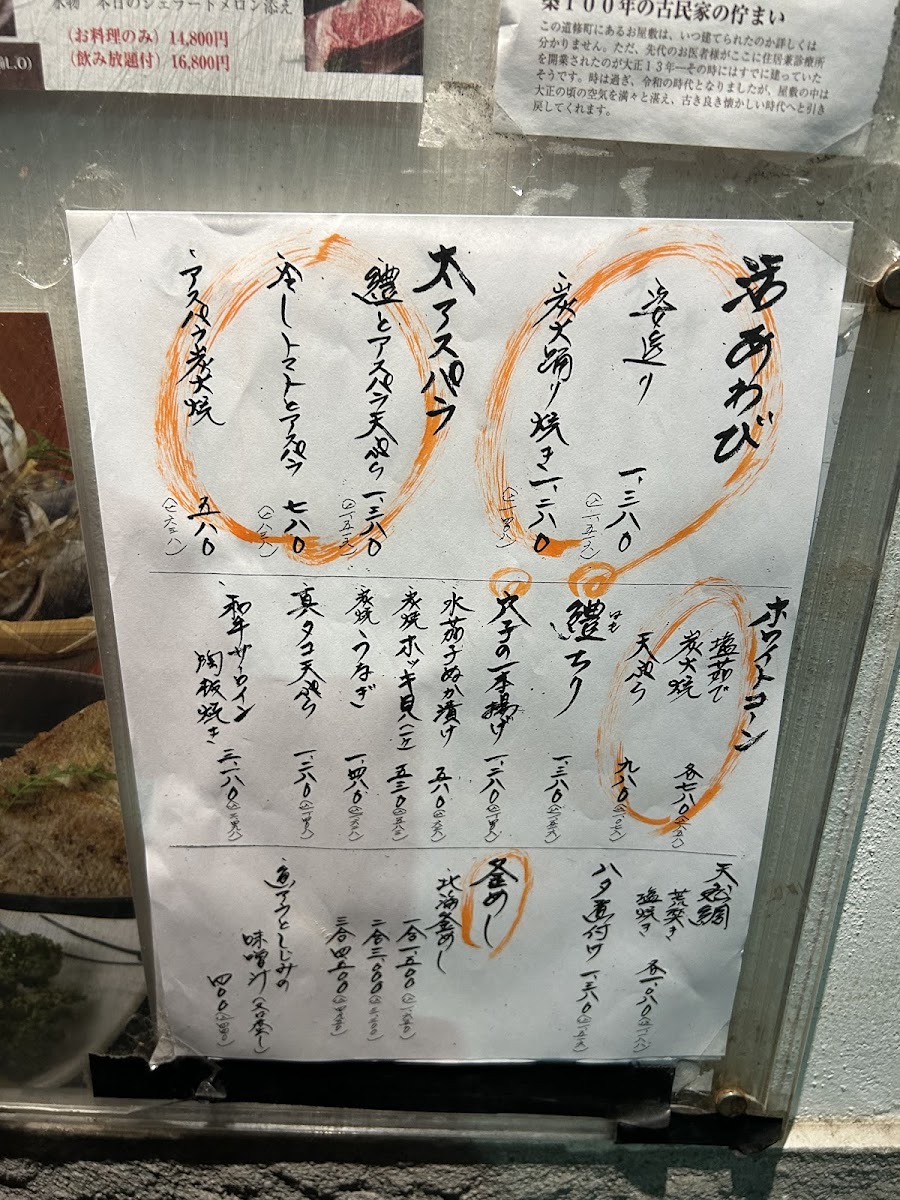 水物 本日のジェラートメロン添え
(お料理のみ) 14,800円
(飲み放題付) 16,800円
L.O)
築100年の古民家の佇まい
この道修町にあるお屋敷は、いつ建てられたのか詳しくは
分かりません。ただ、先代のお医者様がここに住居兼診療所
を開業されたのが大正13年―その時にはすでに建っていた
そうです。時は過ぎ、令和の時代となりましたが、屋敷の中は
大正の頃の空気を満々と湛え、古き良き懐かしい時代へと引き
戻してくれます。
活あわび
姿造り 一、三八〇
(込一、五一八)
炭火踊り焼き 一、二八〇
(込一、四〇八)
太アスパラ
鱧とアスパラ天ぷら 一、三八〇
(込一、五一八)
冷しトマトとアスパラ 七八〇
(込八五八)
アスパラ炭火焼 五八〇
(込六三八)
ホワイトコーン
塩茹で
炭火焼 各七八〇(込八五八)
天ぷら 九八〇(込一、〇七八)
鱧ちり 一、三八〇(込一、五一八)
はも
穴子の一本揚げ 一、二八〇(込一、四〇八)
水茄子ぬか漬け 五八〇(込六三八)
炭焼ホッキ貝(一ヶ) 五三〇(込五八三)
炭焼うなぎ 一、四八〇(込一、六二八)
真タコ天ぷら 一、二八〇(込一、四〇八)
和牛サーロイン
陶板焼き 三、一八〇
天然鯛
荒炊き
塩焼き 各一、〇八〇(込一、一八八)
ハタ煮付け 一、三八〇(込一、五一八)
釜めし
北海釜めし
一合一、五〇〇(込一、六五〇)
二合三、〇〇〇(込三、三〇〇)
三合四、五〇〇(込四、九五〇)
魚アラとしじみの
味噌汁 四〇〇(込四四〇)